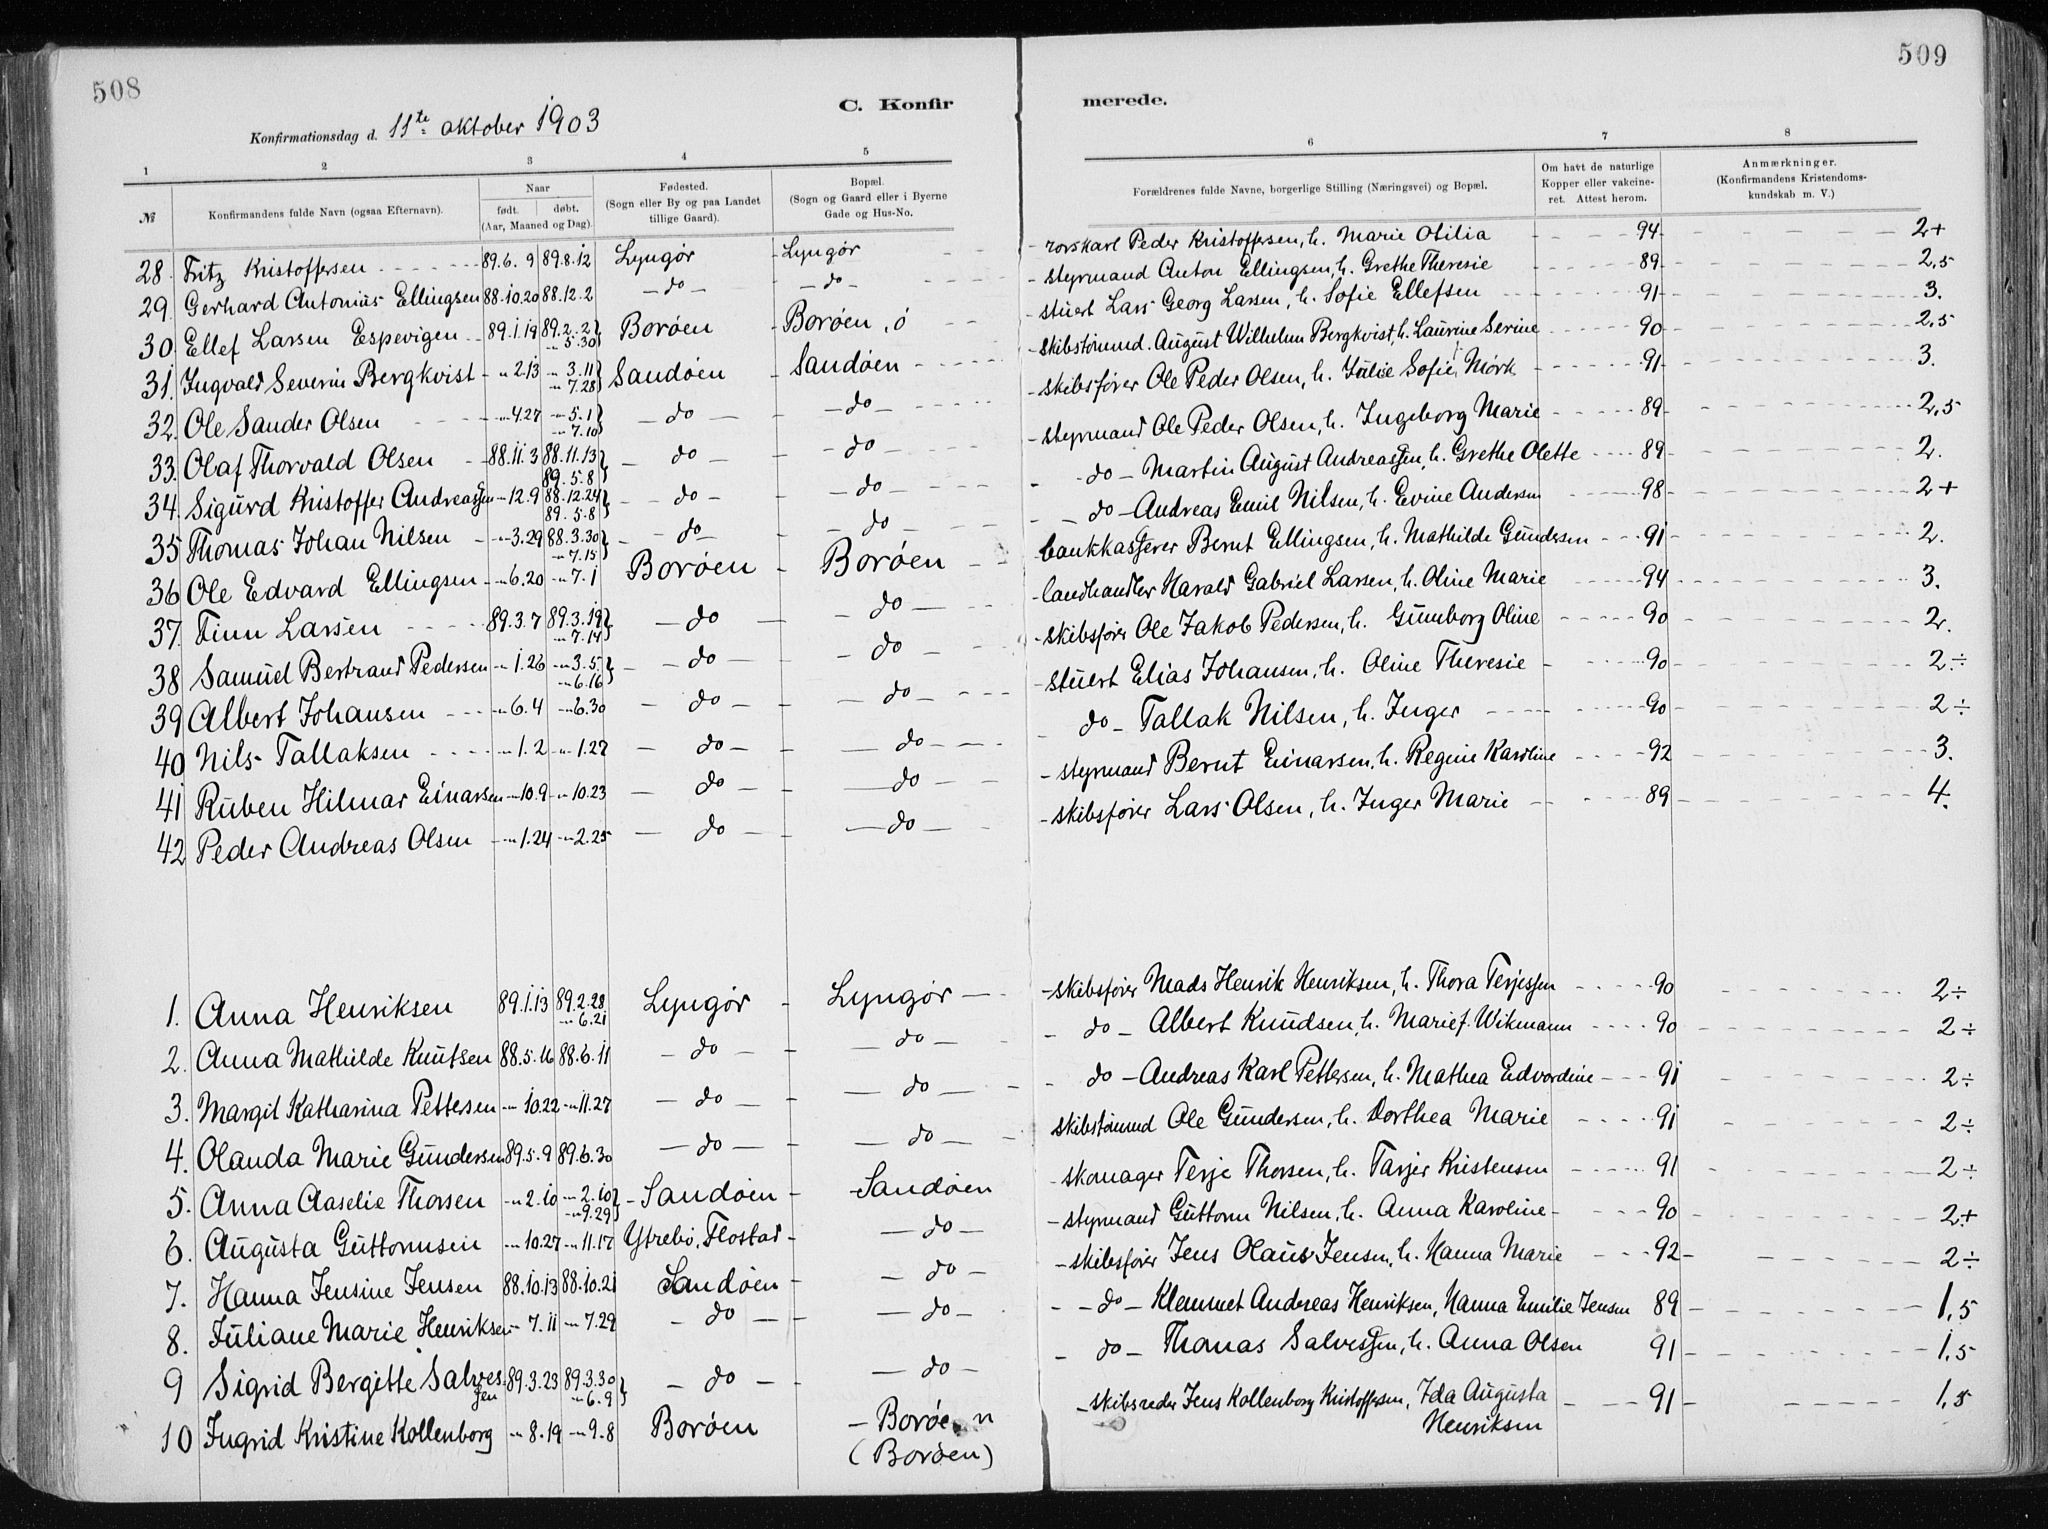 508
509
C. Konfir
merede.
Konfirmationsdag d. 11te oktober 1903
1 2 3 4 5 6 7 8
№ Konfirmandens fulde Navn (ogsaa Efternavn). Naar født. døbt. (Aar, Maaned og Dag). Fødested. (Sogn eller By og paa Landet tillige Gaard). Bopæl. (Sogn og Gaard eller i Byerne Gade og Hus-No. Forældrenes fulde Navne, borgerlige Stilling (Næringsvei) og Bopæl. Om havt de naturlige Kopper eller vakcineret. Attest herom. Anmærkninger. (Konfirmandens Kristendomskundskab m. V.)
28. Fritz Kristoffersen 89.6.9 89.8.12 Lyngør Lyngør rorskarl Peder Kristoffersen, h. Marie Otilia 94 2+
29. Gerhard Antonius Ellingsen 88.10.20 88.12.2 do do styrmand Anton Ellingsen, h. Grethe Theresie 89 2,5
30 Ellef Larsen Espevigen 89.1.19 89.2.2 } Borøen Borøen, ó stuert Lars Georg Larsen, h. Sofie Ellefsen 91 3.
" 5.30
31. Ingvald Severin Bergkvist " 2.13 " 3.11 } Sandøen Sandøen skibstømmd. August Wilhelm Bergkvist, h. Laurine Serine 90 2,5
" 7.28
32. Ole Sander Olsen " 4.27 " 5.1 } do do skibsfører Ole Peder Olsen, h. Julie Sofie Mørk 91 3.
" 7.10
33. Olaf Thorvald Olsen 88.11.3 88.11.13 } do do styrmand Ole Peder Olsen, h. Ingeborg Marie 89 2,5
89.5.8
34. Sigurd Kristoffer Andreassen " 12.9 88.12.24 } do do do Martin August Andreassen, h. Grethe Olette 89 2.
89.5.8
35 Thomas Johan Nilsen " 3.29 88.3.30 } do do do Andreas Emil Nilsen, h. Evine Andersen 98 2+
" 7.15
36 Ole Edvard Ellingsen " 6.20 " 7.1 Borøen Borøen bankkasserer Bernt Ellingsen, h. Mathilde Gundersen 91 2.
37. Finn Larsen 89.3.7 89.3.19 } do do landhandler Harald Gabriel Larsen, h. Oline Marie 94 3.
" 7.14
38 Samuel Bertrand Pedersen " 1.26 " 3.5 } do do skibsfører Ole Jakob Pedersen, h. Gunborg Oline 90 2.
" 6.16
39 Albert Johansen " 6.4 " 6.30 do do stuert Elias Johansen, h. Oline Theresie 90 2÷
40 Nils Tallaksen " 1.2 " 1.27 do do do Tallak Nilsen, h. Inger 90 2÷
41 Ruben Hilmar Einarsen " 10.9 " 10.23 do do styrmand Bernt Einarsen, h. Regine Karoline 92 3.
42 Peder Andreas Olsen " 1.24 " 2.25 do do skibsfører Lars Olsen, h. Inger Marie 89 4.
1. Anna Henriksen 89.1.13 89.2.28 Lyngør Lyngør skibsfører Mads Henrik Henriksen, h. Thora Terjessen 90 2÷
" 6.21
2. Anna Mathilde Knutsen 88.5.16 88.6.11 do do do Albert Knudsen, h. Marie f. Wikmann 90 2÷
3. Margit Katharina Pettesen " 10.22 " 11.27 do do do Andreas Karl Pettersen, h. Mathea Edvardine 91 2÷
4. Olanda Marie Gundersen 89.5.9 89.6.30 do do skibstømmd Ole Gundersen, h. Dorthea Marie 91 2÷
5. Anna Aaselie Thorsen " 2.10 " 2.10 } Sandøen Sandøen skomager Terje Thorsen, h. Tarjer Kristensen 91 2÷
" 9.29
6. Augusta Guttormsen " 10.27 " 11.17 Ytrebø, Flostad do styrmand Guttorm Nilsen, h. Anna Karoline 90 2+
7. Hanna Jensine Jensen 88.10.13 88.10.21 Sandøen do skibsfører Jens Olaus Jensen, h. Hanna Marie 92 2÷
8. Juliane Marie Henriksen " 7.11 " 7.29 do do do Klemmet Andreas Henriksen, Hanna Emilie Jensen 89 1,5
9 Sigrid Bergitte Salves 89.3.23 89.3.30 } do do do Thomas Salvessen, h. Anna Olsen 91 1,5
sen " 6.9
10 Ingrid Kristine Kollenborg " 8.19 " 9.8 Borøen Borøen skibsreder Jens Kollenborg Kristoffersen, Ida Augusta 91 1,5
(Borøen) Henriksen